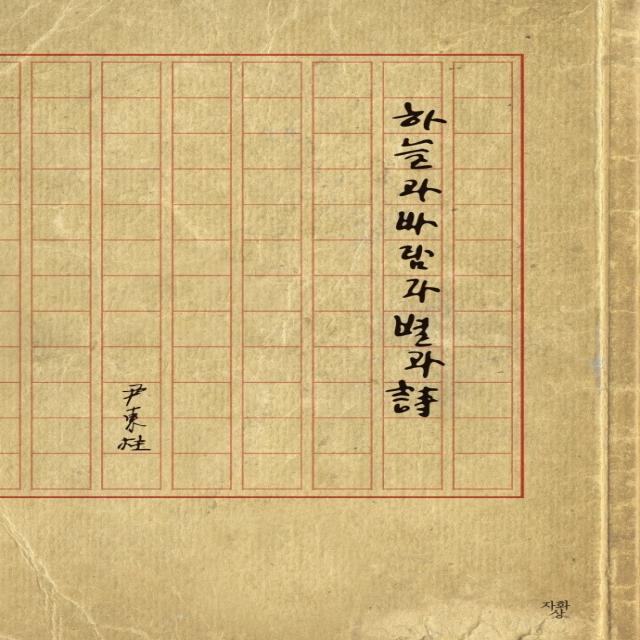 하늘과 바람과 별과 詩
尹東柱
자화상